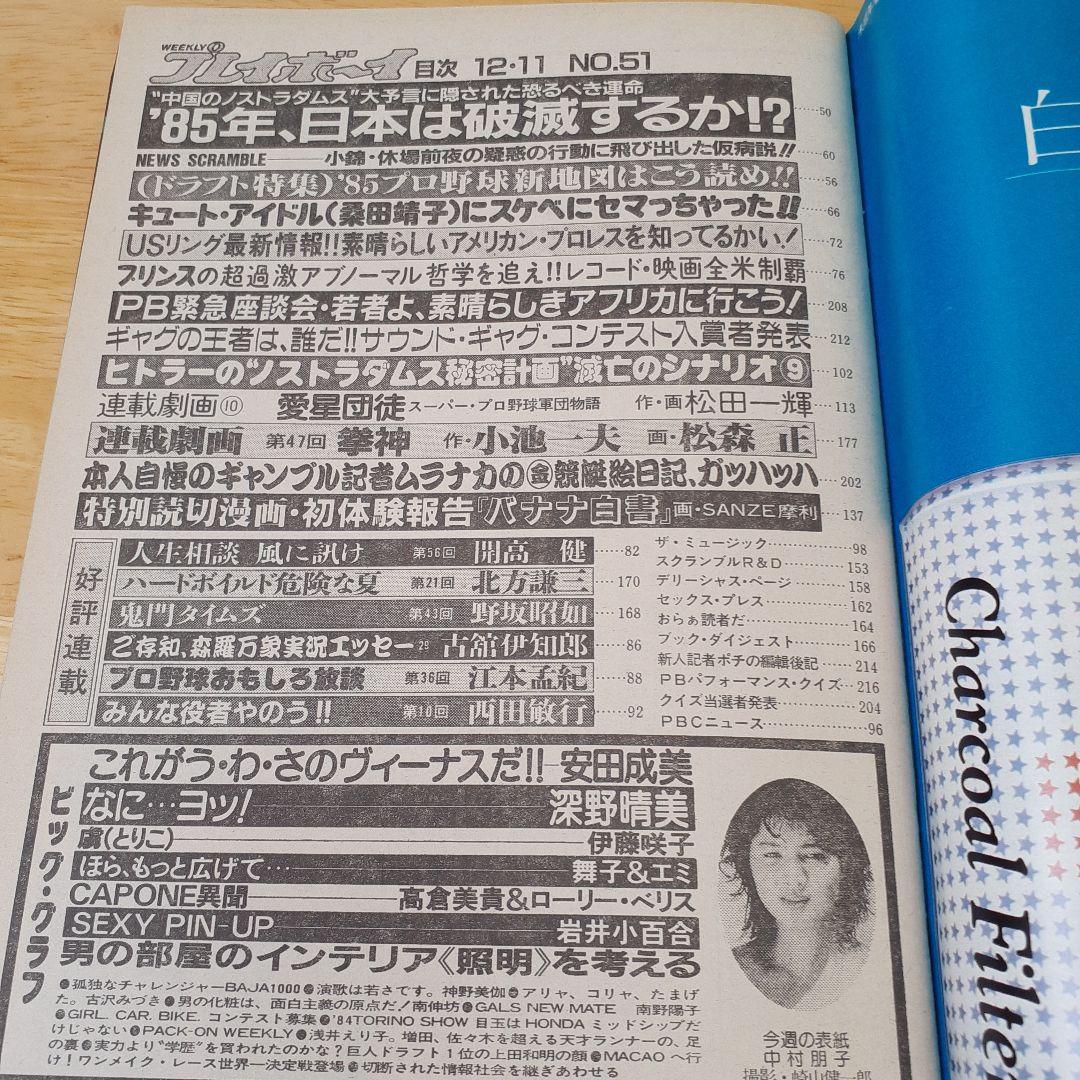 WEEKLY プレイボーイ 目次 12・11 NO.51
“中国のノストラダムス”大予言に隠された恐るべき運命
'85年、日本は破滅するか!? 50
NEWS SCRAMBLE 小錦・休場前夜の疑惑の行動に飛び出した仮病説!! 60
(ドラフト特集)'85プロ野球新地図はこう読め!! 56
キュート・アイドル(桑田靖子)にスケベにセマっちゃった!! 66
USリング最新情報!!素晴らしいアメリカン・プロレスを知ってるかい! 72
プリンスの超過激アブノーマル哲学を追え!!レコード・映画全米制覇 76
PB緊急座談会・若者よ、素晴らしきアフリカに行こう! 208
ギャグの王者は、誰だ!!サウンド・ギャグ・コンテスト入賞者発表 212
ヒトラーの“ノストラダムス秘密計画”滅亡のシナリオ⑨ 102
連載劇画⑩ 愛星団徒 スーパー・プロ野球軍団物語 作・画 松田一輝 113
連載劇画 第47回 拳神 作・小池一夫 画・松森正 177
本人自慢のギャンブル記者ムラナカの㊎競艇絵日記、ガッハッハ 202
特別読切漫画・初体験報告『バナナ白書』画・SANZE摩利 137
好評連載
人生相談 風に訊け 第56回 開高 健 82
ハードボイルド危険な夏 第21回 北方謙三 170
鬼門タイムズ 第43回 野坂昭如 168
ご存知、森羅万象実況エッセー 29 古舘伊知郎 86
プロ野球おもしろ放談 第36回 江本孟紀 88
みんな役者やのう!! 第10回 西田敏行 92
ザ・ミュージック 98
スクランブルR&D 153
デリーシャス・ページ 158
セックス・プレス 162
おらぁ読者だ 164
ブック・ダイジェスト 166
新人記者ポチの編集後記 214
PBパフォーマンス・クイズ 216
クイズ当選者発表 204
PBCニュース 96
ビッグ・グラフ
これがう・わ・さのヴィーナスだ!! 安田成美
なに…ヨッ! 深野晴美
虜(とりこ) 伊藤咲子
ほら、もっと広げて… 舞子&エミ
CAPONE異聞 高倉美貴&ローリー・ベリス
SEXY PIN-UP 岩井小百合
男の部屋のインテリア《照明》を考える
●孤独なチャレンジャーBAJA1000●演歌は若さです。神野美伽●アリャ、コリャ、たまげ
た。古沢みづき●男の化粧は、面白主義の原点だ!南伸坊●GALS NEW MATE 南野陽子
●GIRL. CAR. BIKE. コンテスト募集●'84TORINO SHOW 目玉はHONDA ミッドシップだ
けじゃない●PACK-ON WEEKLY●浅井えり子。増田、佐々木を超える天才ランナーの、足
の裏●実力より“学歴”を買われたのかな?巨人ドラフト1位の上田和明の顔●MACAOへ行
け!ワンメイク・レース世界一決定戦登場●切断された情報社会を継ぎあわせる
今週の表紙
中村朋子
撮影・崎山健一郎
白
Charcoal Filte